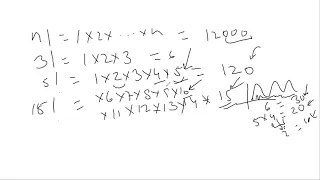 n! = 1×2× ... ×n = 12000
3! = 1×2×3 = 6
5! = 1×2×3×4×5 = 120
15! = ×6×7×8×9×10
×11×12×13×14×15
6 = 30
5×4 = 20
2 = 10